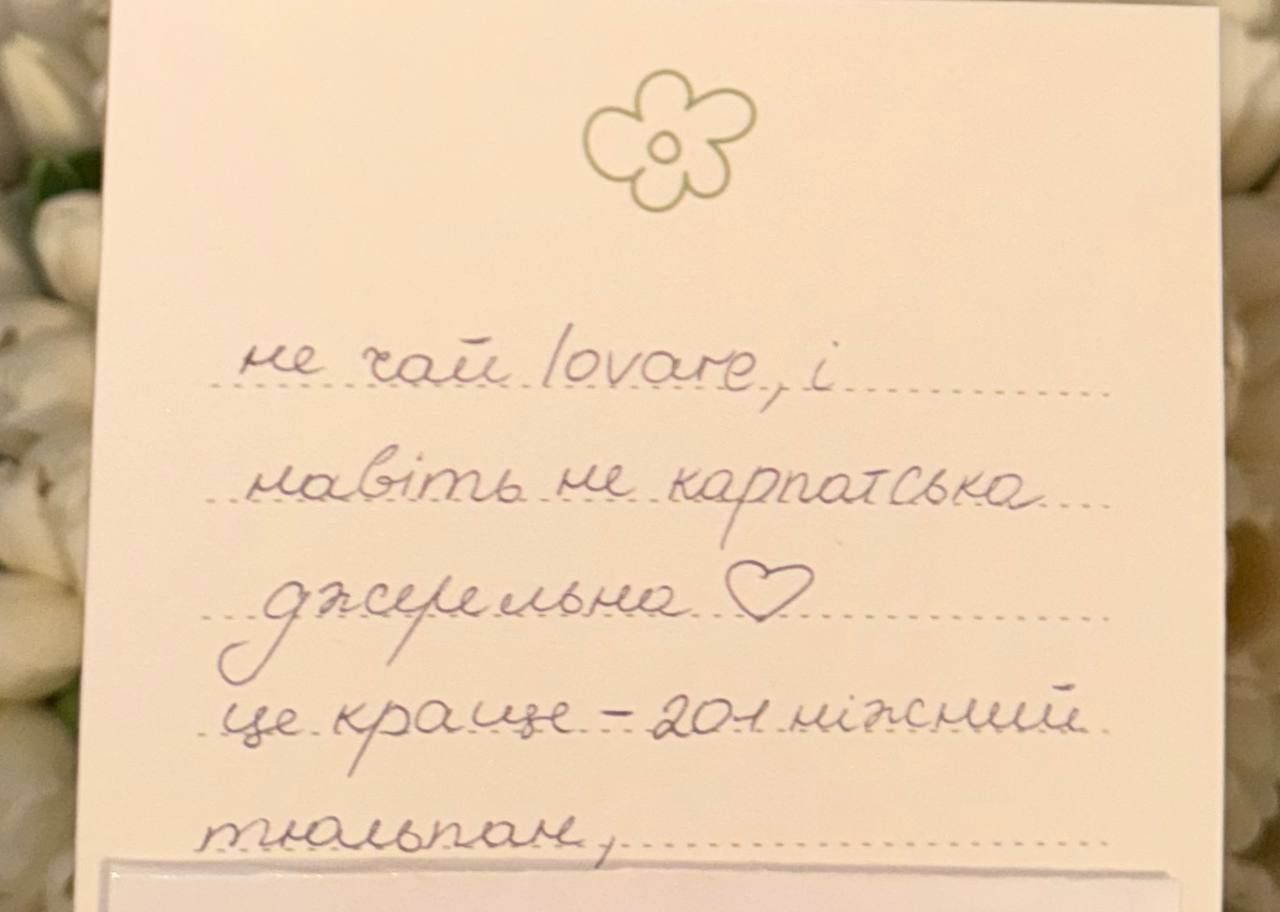 не чай lovare, і
навіть не карпатська
джерельна ♡
це краще - 201 ніжний
тюльпан,